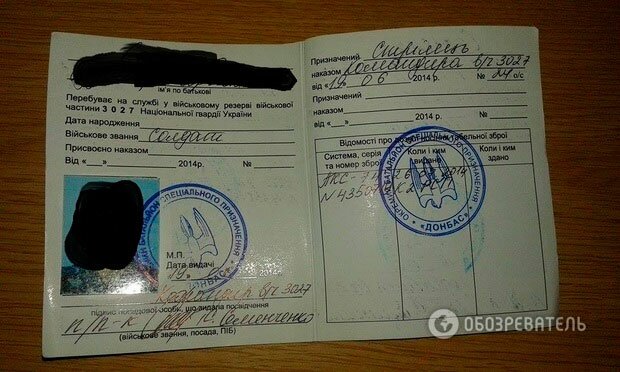 ім'я по батькові
Перебуває на службі у військовому резерві військової
частини 3027 Національної гвардії України
Дата народження
Військове звання солдат
Присвоєно наказом
Від «__»__ 2014р. №
М.П.
Дата видачі
19 2014р.
в/ч 3027
підпис посадової особи, що видала посвідчення
п/п-к
(військове звання, посада, ПІБ)
Призначений Стрілець
наказом командира в/ч 3027
від «19» 06 2014р. № 24 о/с
Призначений
наказом
від «__»__ 2014р. №
Відомості про табельної зброї
Система, серія та номер зброї
Коли і ким видано
Коли і ким здано
ОКРЕМИЙ БАТАЛЬЙОН СПЕЦІАЛЬНОГО ПРИЗНАЧЕННЯ
«ДОНБАС»
БАТАЛЬЙОН СПЕЦІАЛЬНОГО ПРИЗНАЧЕННЯ
ДОНБАС»
ОБОЗРЕВАТЕЛЬ